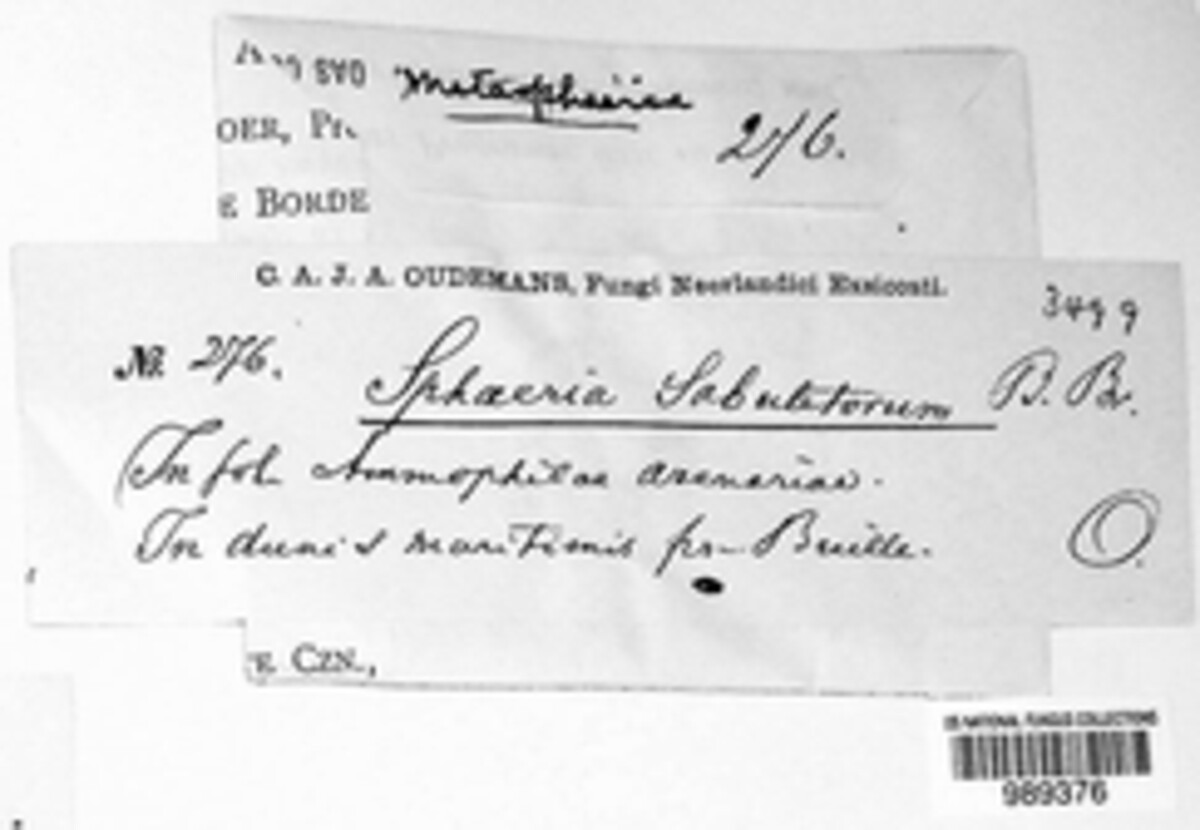 Metasphaeria
276.
OER, Pr
E BORDE
C. A. J. A. OUDEMANS, Fungi Neerlandici Exsiccati.
3499
№ 276. Sphaeria Sabuletorum B. Br.
In fol. Ammophilae arenariae.
In dunis maritimis pr. Brielle.
O.
E CZN.,
US NATIONAL FUNGUS COLLECTIONS
989376